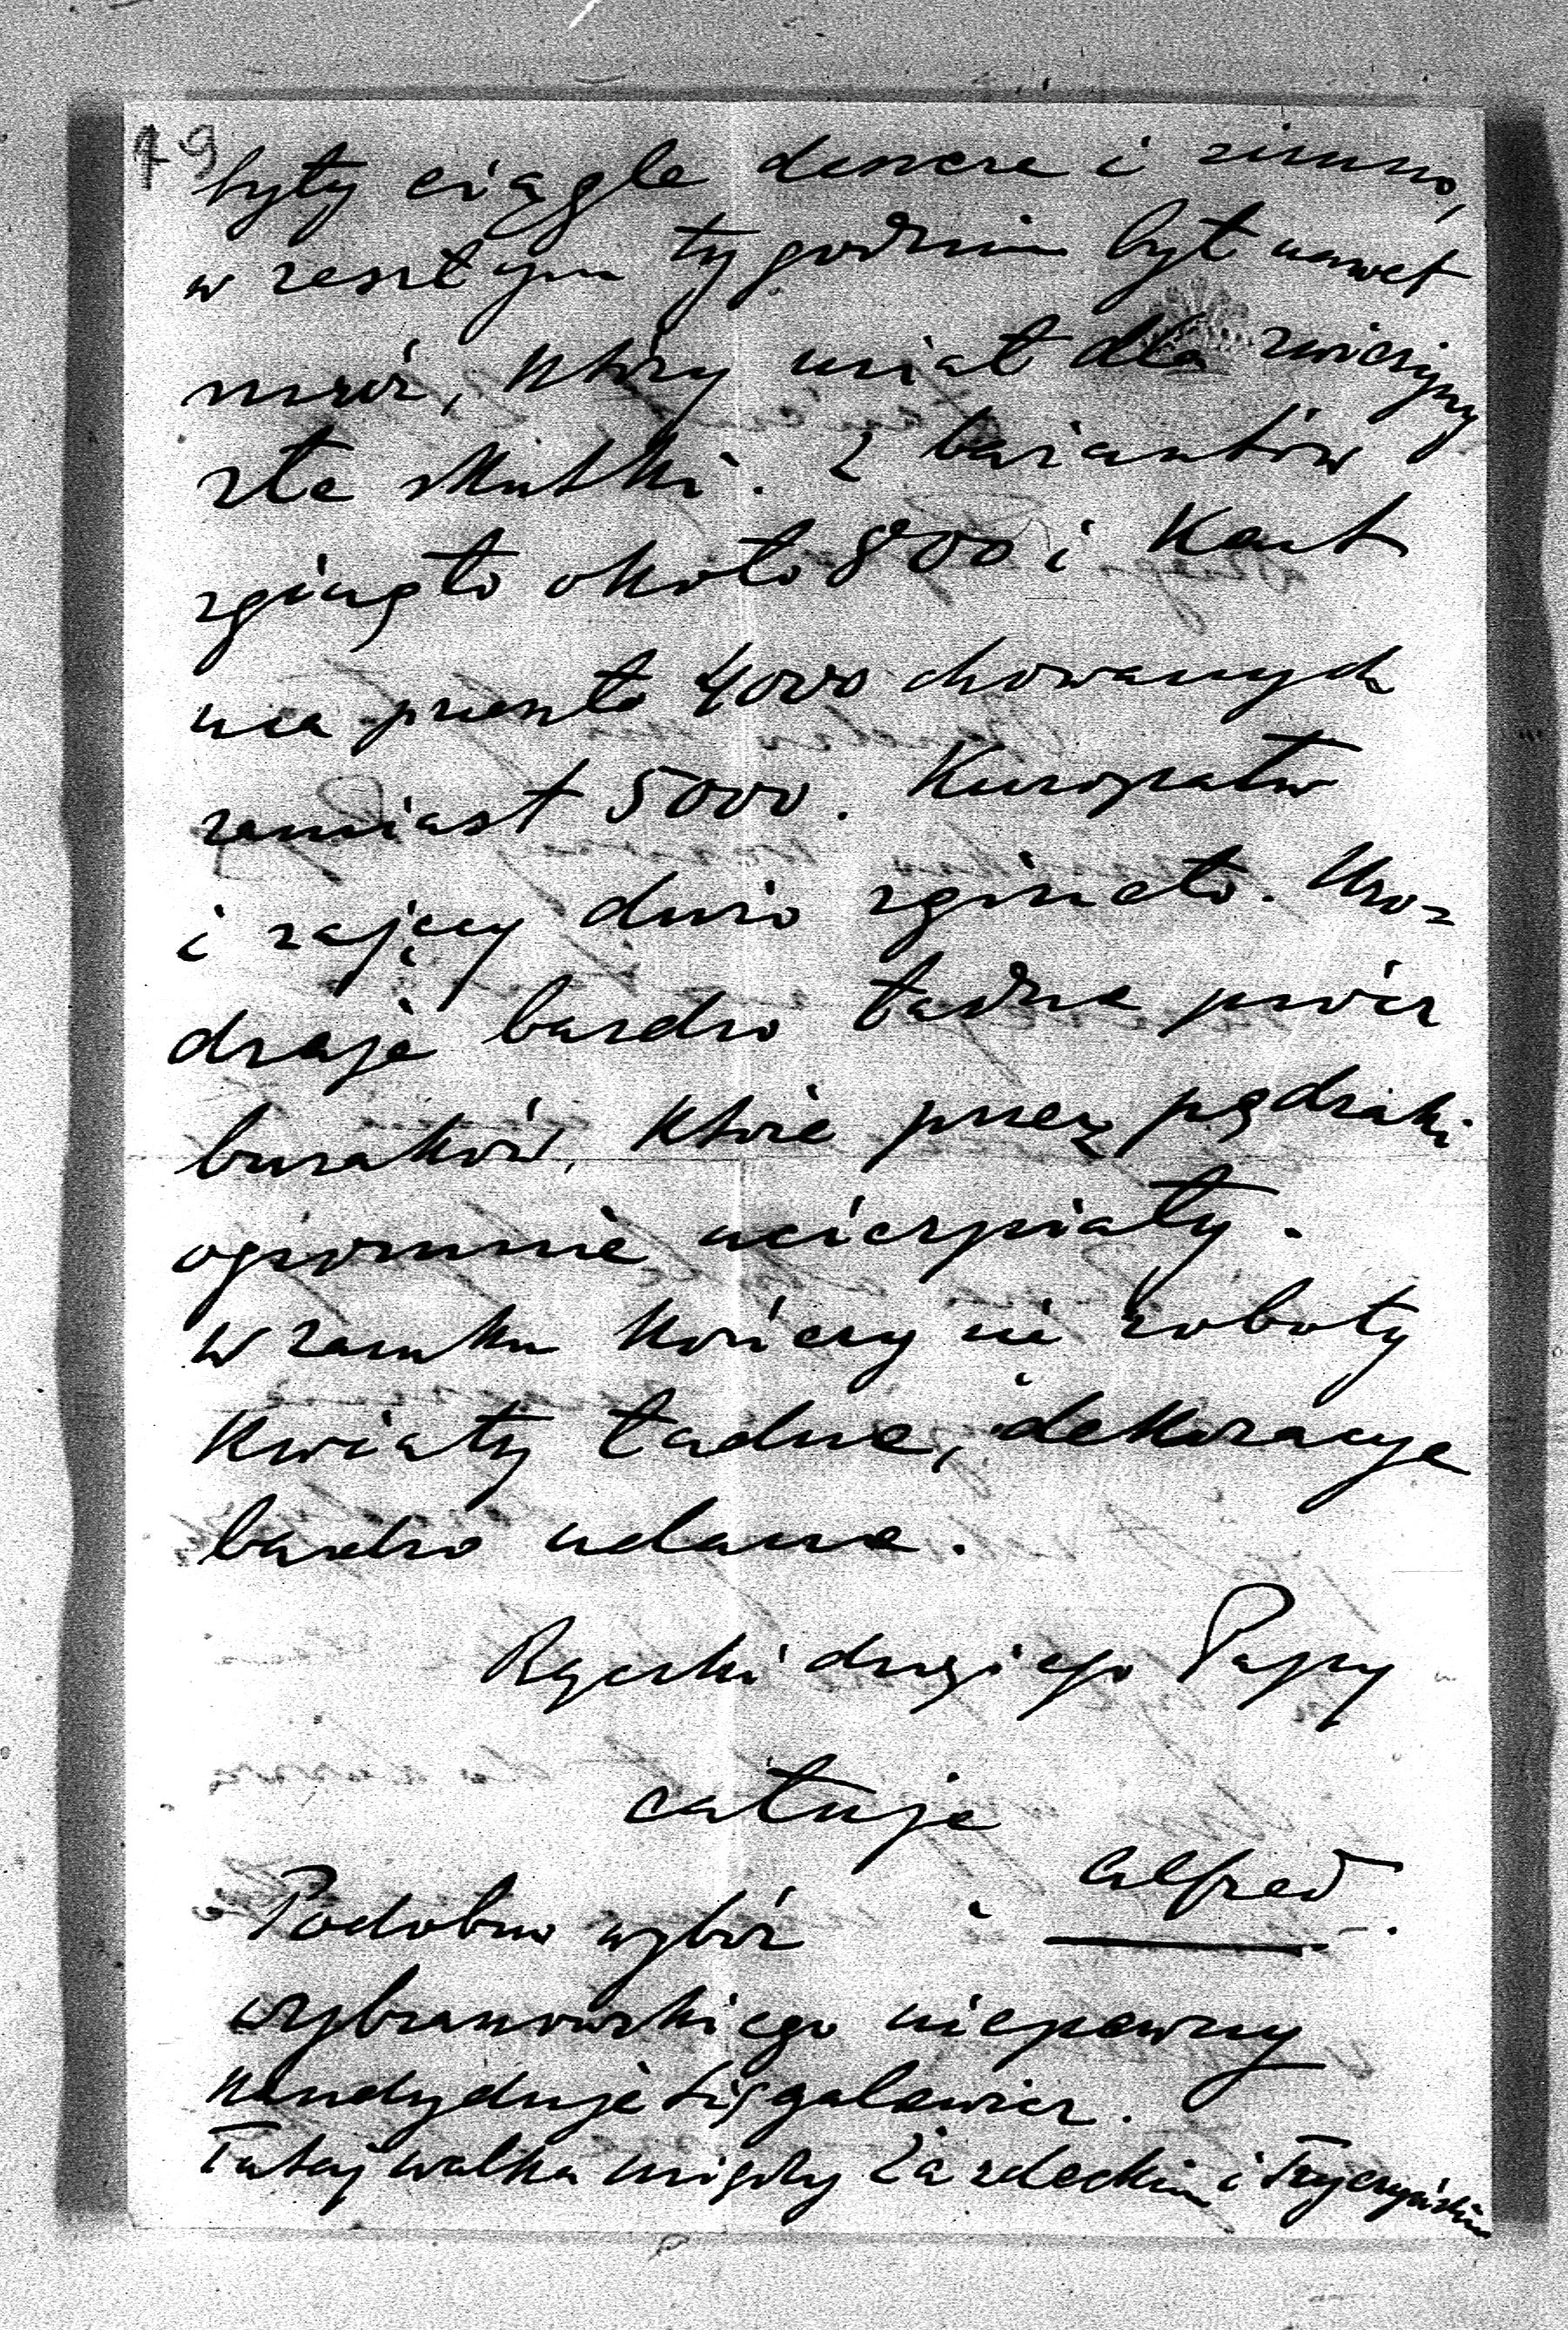 79
były ciągle deszcze i zimno,
w zeszłym tygodniu był nawet
mróz, który miał dla zwierzyny
złe skutki. Z bażantów
zginęło około 800 i
na przeszło 4000 chowanych
zamiast 5000. Kuropatw
i zajęcy dużo zginęło. Uro-
dzaje bardzo ładne prócz
buraków, które przez pędraki
ogromnie ucierpiały.
W zamku kończy się roboty
Kwiaty ładne, dekoracye
bardzo udane.
Rączki drogiego Papy
całuje
Alfred.
Podobno wybór
Wybranowskiego niepewny
kandyduje też
Tutaj walka między Żardeckim i